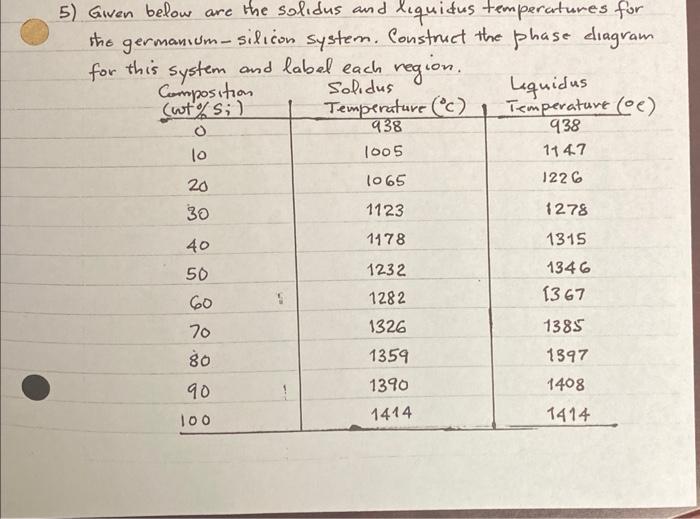 5) Given below are the solidus and liquidus temperatures for
the germanium-silicon system. Construct the phase diagram
for this system and label each region.
Composition (wt% Si) Solidus Temperature (°C) Liquidus Temperature (°C)
0 938 938
10 1005 1147
20 1065 1226
30 1123 1278
40 1178 1315
50 1232 1346
60 1282 1367
70 1326 1385
80 1359 1397
90 1390 1408
100 1414 1414